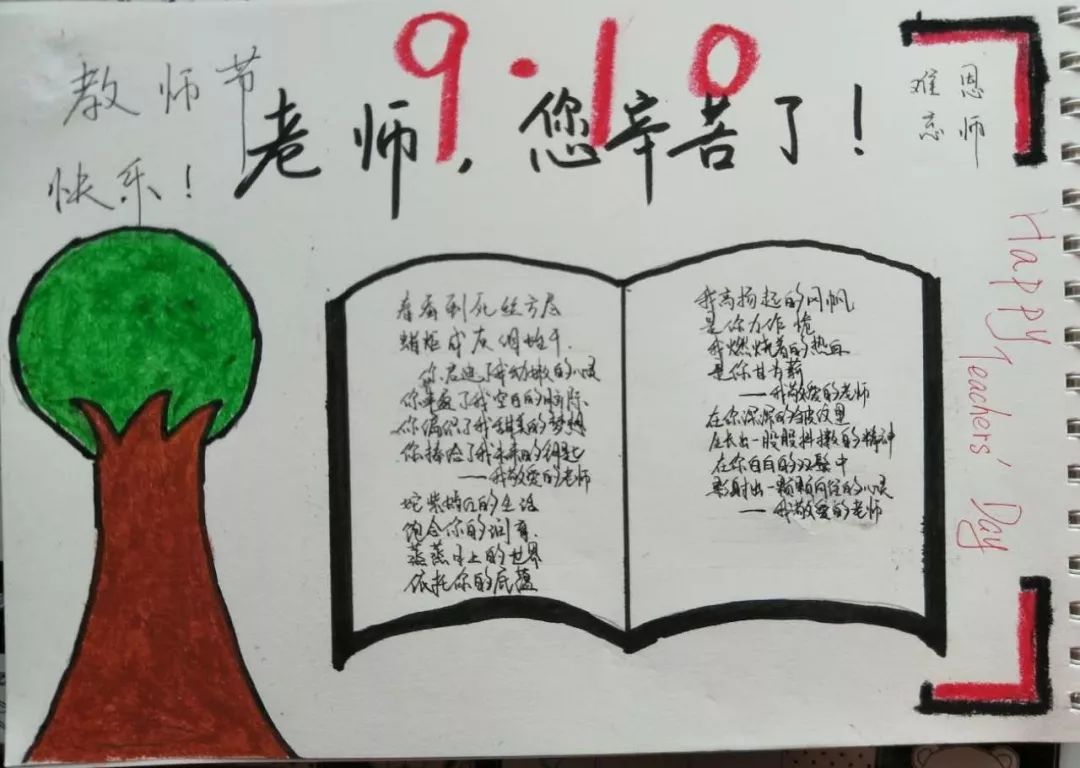 9·10
教师节
快乐！
老师，您辛苦了！
恩师
难忘
Happy Teachers' Day
春蚕到死丝方尽
蜡炬成灰泪始干.
你启迪了我幼嫩的心灵
你丰盈了我空白的脑际.
你编织了我甜美的梦想
你捧给了我未来的钥匙
——我敬爱的老师
姹紫嫣红的生活
饱含你的润育.
蒸蒸日上的世界
依托你的底蕴
我高扬起的风帆
是你力作桅
我燃烧着的热血
是你甘为薪
——我敬爱的老师
在你深深的皱纹里
生长出一股股抖擞的精神
在你白白的双鬓中
影射出一颗颗向往的心灵
—我敬爱的老师